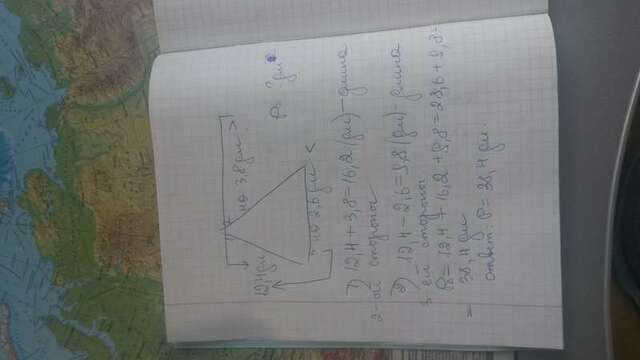 12,4 дм
на 3,8 дм >
на 2,6 дм <
P = ? дм
1) 12,4 + 3,8 = 16,2 (дм) — длина
2-ой стороны
2) 12,4 - 2,6 = 9,8 (дм) - длина
3-ей стороны
P = 12,4 + 16,2 + 9,8 = 28,6 + 9,8 =
= 38,4 дм
ответ: P = 38,4 дм.